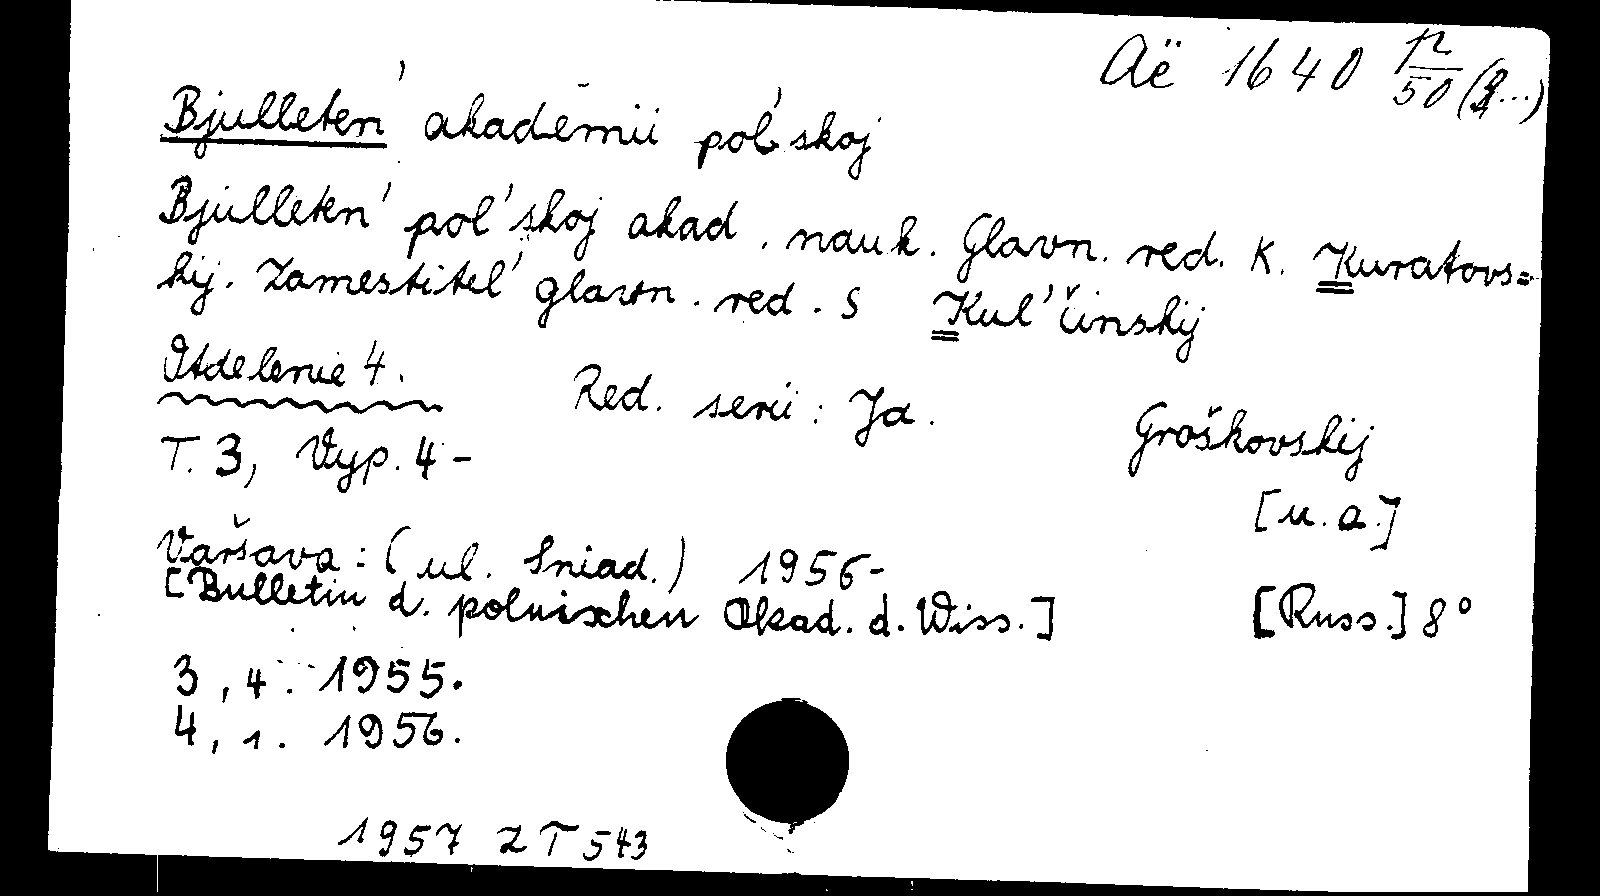 Aë 1640 12/50 (3...)
Bjulleten' akadēmii pol'skoj
Bjulletn' pol'skoj akad. nauk. Glavn. red. K. Kuratovs=
kij. Zamestitel' glavn. red. S Kul'činskij
Otdelenie 4. Red. serii: Ja. Groškovskij
T. 3, Vyp. 4- [u. a.]
Varšava: (ul. Sniad.) 1956-
[Bulletin d. polnischen Akad. d. Wiss.] [Russ.] 8°
3, 4. 1955.
4, 1. 1956.
1957 ZT 543